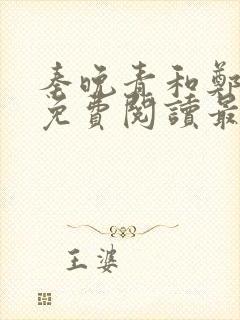 秦晚青和鄭
免費閱讀最
王婆